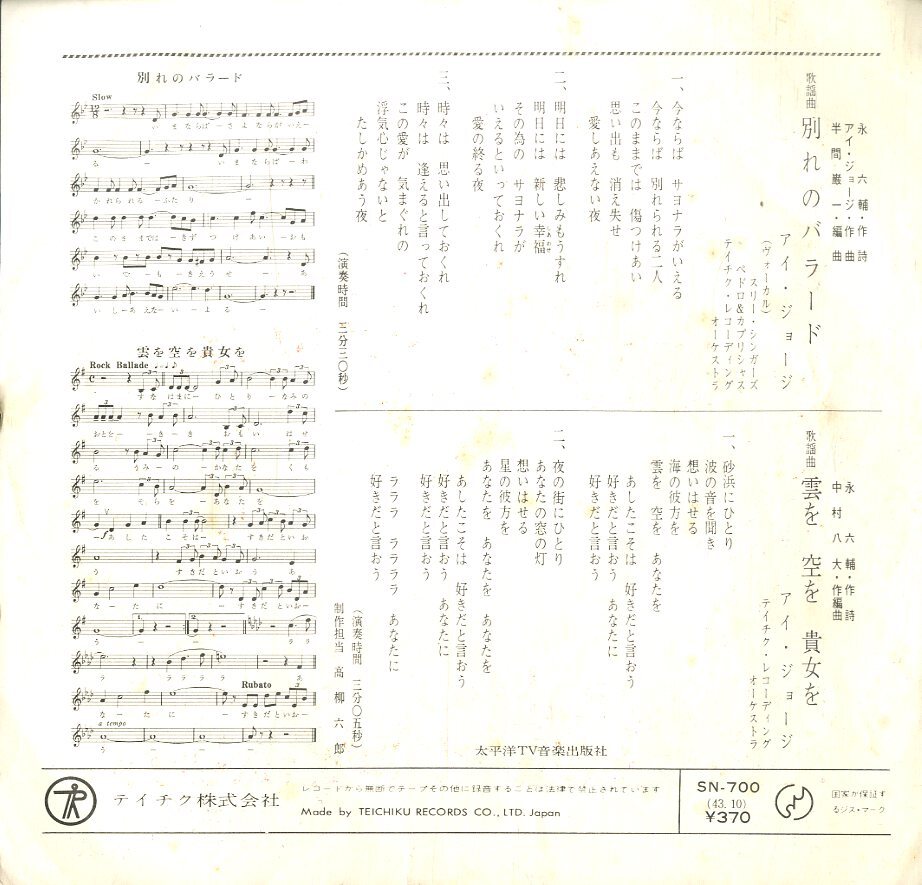 歌謡曲
別れのバラード
永 六輔・作詩
アイ・ジョージ・作曲
半間巌一・編曲
アイ・ジョージ
(ヴォーカル)
スリー・シンガーズ
ペドロ&カプリシャス
テイチク・レコーディング
オーケストラ
一、今ならば サヨナラがいえる
今ならば 別れられる二人
このままでは 傷つけあい
思い出も 消え失せ
愛しあえない夜
二、明日には 悲しみもうすれ
明日には 新しい幸福
しあわせ
その為の サヨナラが
いえるといっておくれ
愛の終る夜
三、時々は 思い出しておくれ
時々は 逢えると言っておくれ
この愛が 気まぐれの
浮気心じゃないと
たしかめあう夜
(演奏時間 三分三〇秒)
歌謡曲
雲を 空を 貴女を
永 六輔・作詩
中村八大・作編曲
アイ・ジョージ
テイチク・レコーディング
オーケストラ
一、砂浜にひとり
波の音を聞き
想いはせる
海の彼方を
雲を 空を あなたを
あしたこそは 好きだと言おう
好きだと言おう あなたに
好きだと言おう
二、夜の街にひとり
あなたの窓の灯
想いはせる
星の彼方を
あなたを あなたを あなたを
あしたこそは 好きだと言おう
好きだと言おう あなたに
好きだと言おう
ラララ ララララ あなたに
好きだと言おう
(演奏時間 三分〇五秒)
制作担当 高柳六郎
太平洋TV音楽出版社
別れのバラード
Slow
い まならば ー さ よ な ら が い え ー
る ー い ま な ら ば ー わ
か れ ら れ る ー ふ た り ー
こ の ま ま で は ー き ず つ け あ い ー お も
い で ー も ー き え う せ ー あ
い し ー あ え な ー い ー よ る ー
雲を空を貴女を
Rock Ballade
す な は ま に ー ひ と り ー な み の
お と を ー ー き ー き お も い は せ
る う み ー の ー か な た を く も
を そ ら を ー あ な た を
ー あ し た こ そ は ー す き だ と い お
う す き だ と い お う あ
な ー た に ー す き だ と い お ー
う ー ー ラ ラ
ラ ラ ラ ラ ラ あ
Rubato
な ー た に ー ー す き だ と い お ー
a tempo
う ー ー ー
テイチク株式会社
レコードから無断でテープその他に録音することは法律で禁止されています
Made by TEICHIKU RECORDS CO., LTD. Japan
SN-700
(43. 10)
¥370
国家が保証す
るジス・マーク